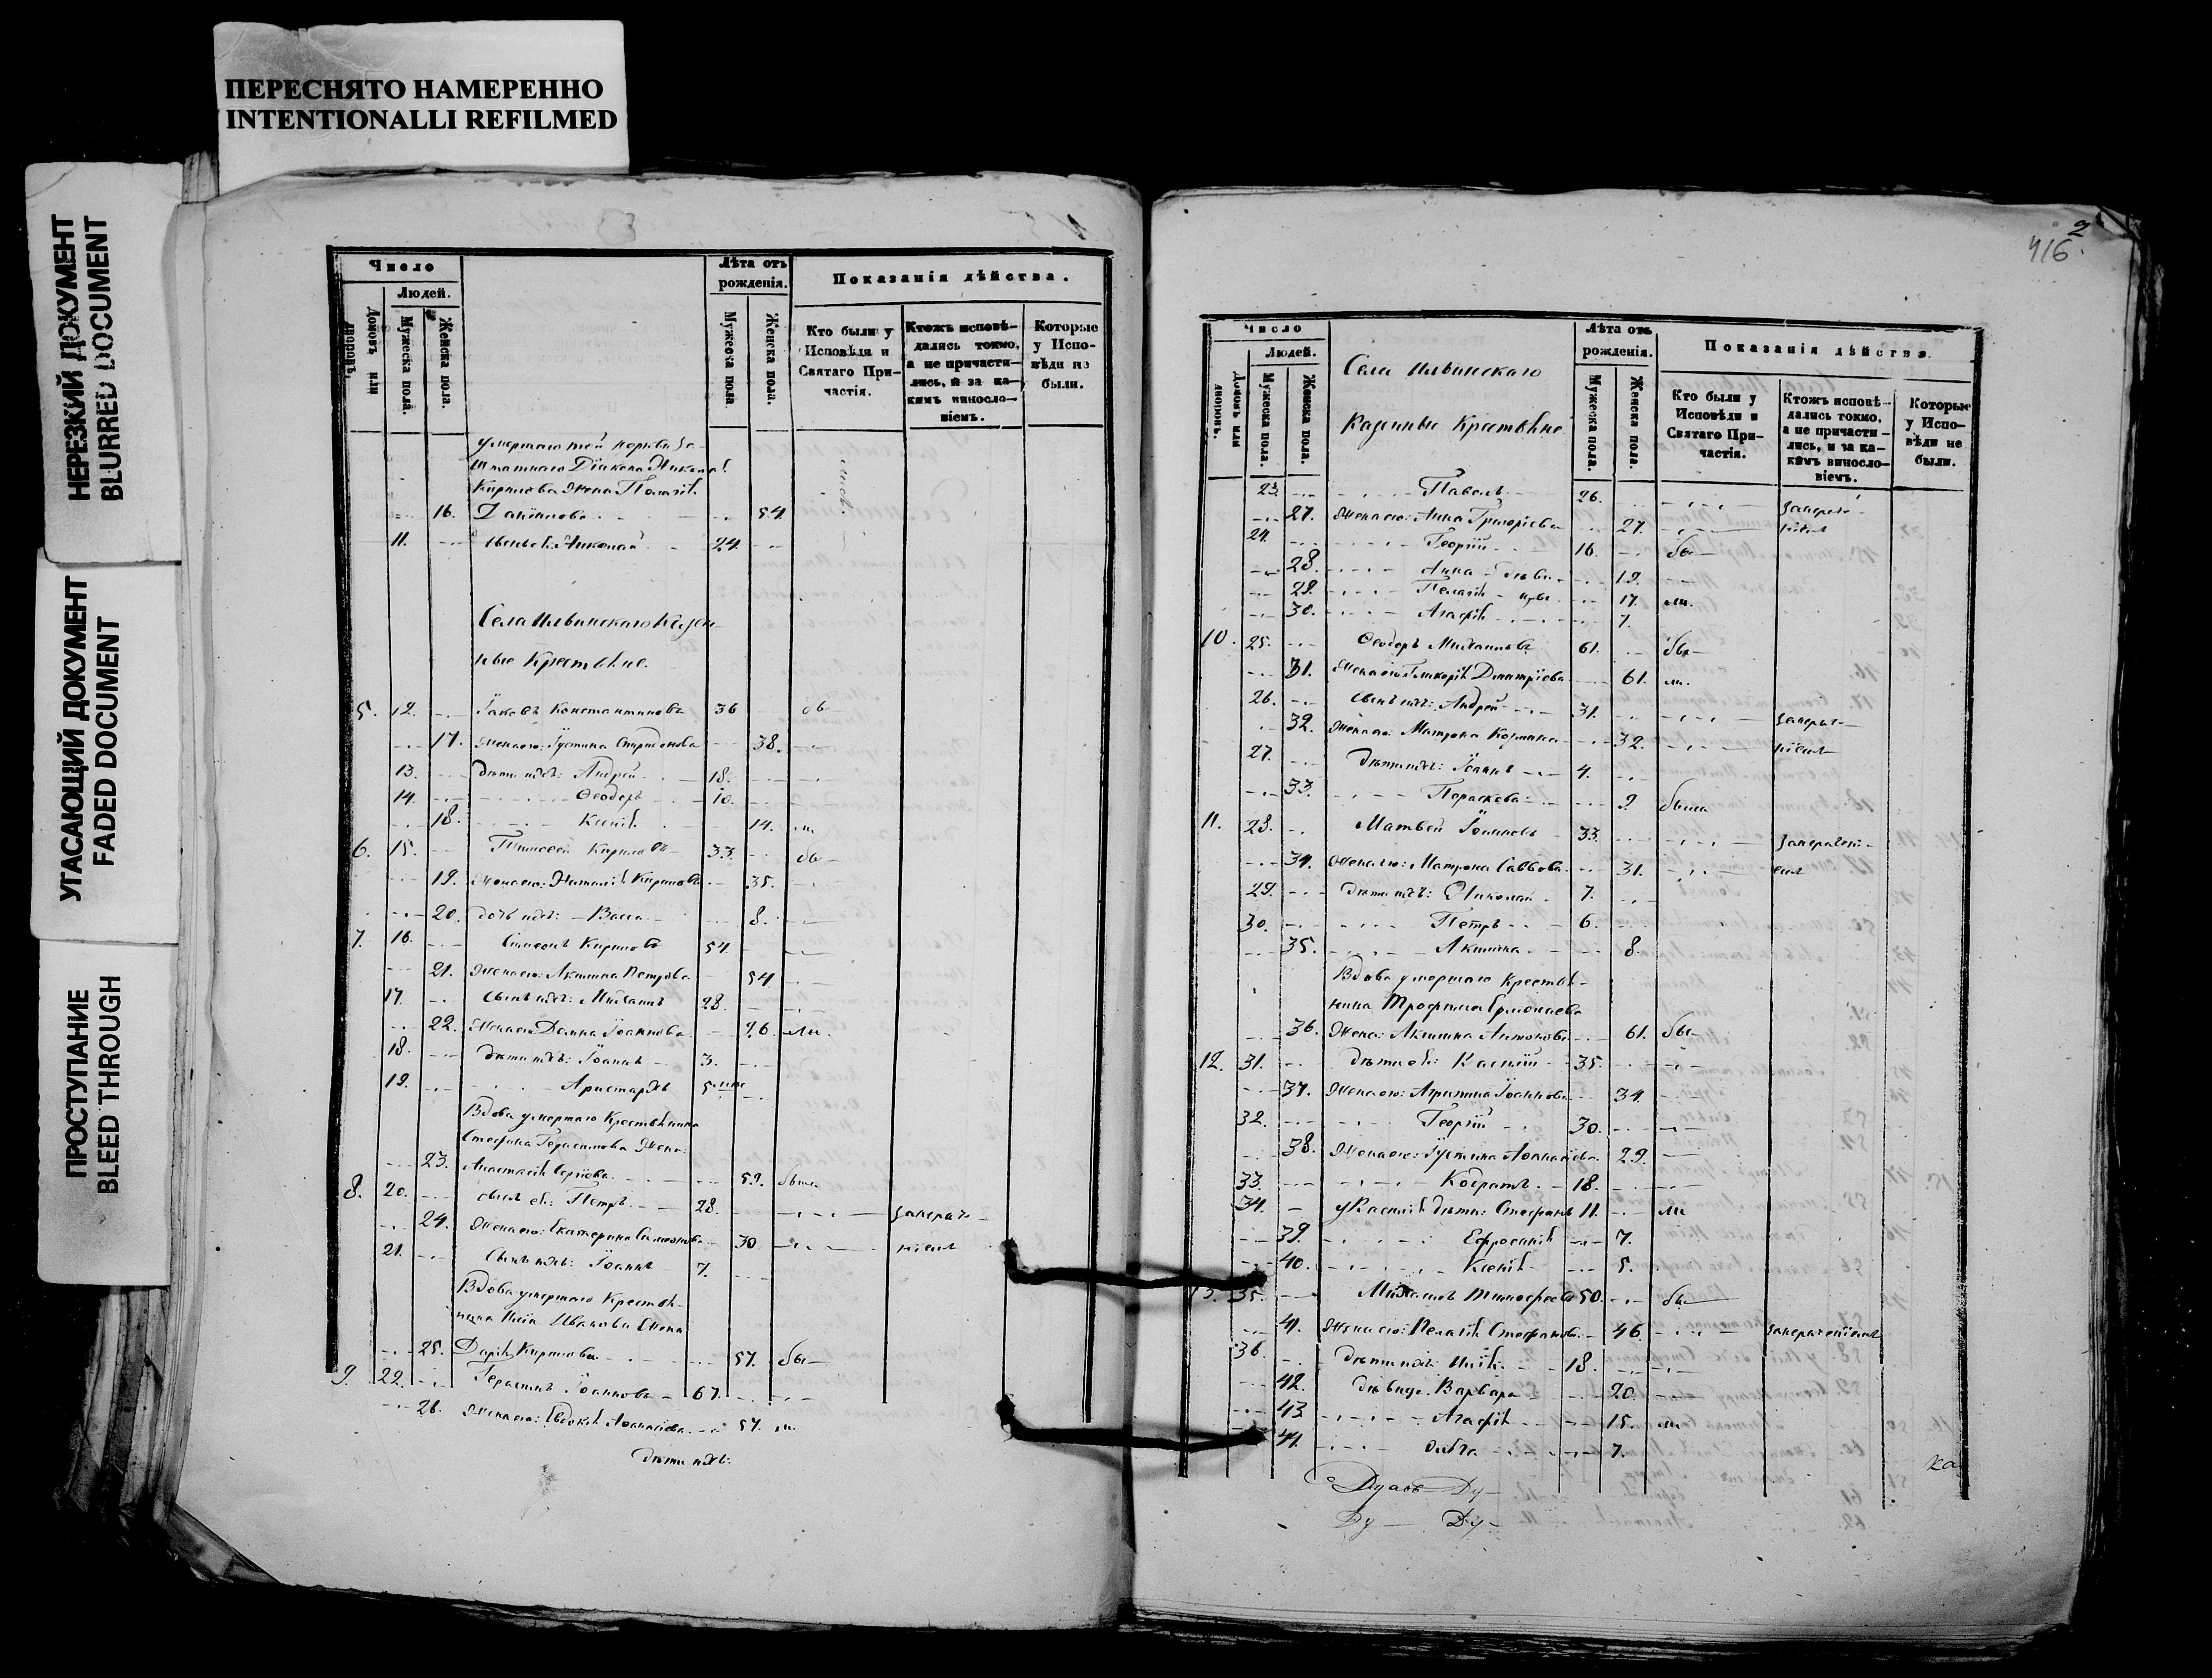 ПЕРЕСНЯТО НАМЕРЕННО
INTENTIONALLI REFILMED
НЕРЕЗКИЙ ДОКУМЕНТ
BLURRED DOCUMENT
УГАСАЮЩИЙ ДОКУМЕНТ
FADED DOCUMENT
ПРОСТУПАНИЕ
BLEED THROUGH
Число
Людей.
Домовъ или дворовъ.
Мужеска пола.
Женска пола.
Лѣта отъ рожденія.
Мужеска пола.
Женска пола.
Показанія дѣйства.
Кто были у Исповѣди и Святаго Причастія.
Ктожъ исповѣдались токмо, а не причастились, и за какимъ винословіемъ.
Которые у Исповѣди не были.
умершаго той церкви За-
штатнаго Діакона
Кирилова Жена Пелагія
16. Даніилова 54.
11. сынъ ея Николай 24.
Села Ильинскаго Казен-
ные Крестьяне.
5. 12. Іаковъ Константиновъ 36
17. Жена его: Іустина Спиридонова 38.
13. Дѣти ихъ: Андрей 18.
14. Ѳеодоръ 10.
18. Ксенія 14.
6. 15. Тимоѳей Кириловъ 33. бы
19. Жена его: Наталія Кирилова 35.
20. дочь ихъ: Васса 8.
7. 16. Симеонъ Кириловъ 54.
21. Жена его: Акилина Петрова 54
17. сынъ ихъ: Михаилъ 28.
22. Жена его Домна Іоаннова 26. ли
18. Дѣти ихъ: Іоаннъ 3.
19. Аристархъ 5
Вдова умершаго Крестьянина
Стефана Герасимова Жена:
23. Анастасія Сергіева 59. была
8. 20. сынъ ея: Петръ 28. запрещ-
24. Жена его: Екатерина Симеонова 30
21. Сынъ ихъ: Іоаннъ 7.
Вдова умершаго Крестья-
нина Иліи Иванова Жена
25. Дарія Кирилова 57. бы
9. 22. Герасимъ Іоанновъ 67.
26. Жена его: Евдокія Аѳанасіева 57. ли.
Дѣти ихъ:
2
416.
Число
Людей.
Домовъ или дворовъ.
Мужеска пола.
Женска пола.
Села Ильинскаго
Казенные Крестьяне
Лѣта отъ рожденія.
Мужеска пола.
Женска пола.
Показанія дѣйства.
Кто были у Исповѣди и Святаго Причастія.
Ктожъ исповѣдались токмо, а не причастились, и за какимъ винословіемъ.
Которые у Исповѣди не были.
23. Павелъ 26.
27. Жена его: Анна Григоріева 27.
24. Георгій 16. бы
28. Анна 19.
29. Пелагія 17. ли.
30. Агафія 7.
10. 25. Ѳеодоръ Михаиловъ 61. бы
31. Жена его Гликерія Димитріева 61. ли.
26. сынъ ихъ: Андрей 31.
32. Жена его: Матрона Козмина 32.
27. Дѣти ихъ: Іоаннъ 4.
33. Параскева 9. была
11. 28. Матвей Іоанновъ 33.
34. Жена его: Матрона Саввова 31.
29. Дѣти ихъ: Николай 7.
30. Петръ 6.
35. Акилина 8.
Вдова умершаго Крестья-
нина Трофима Ермолаева
36. Жена: Акилина Антонова 61. бы
12. 31. Дѣти ея: Василій 35.
37. Жена его: Агрипина Іоаннова 34.
32. Георгій 30.
38. Жена его: Іустина Аѳанасіева 29.
33. Кодратъ 18.
34. У Василія дѣти: Стефанъ 11. ли
39. Ефросинія 7.
40. Ксенія 5.
13. 35. Михаилъ Тимоѳеевъ 50. бы
41. Жена его: Пелагія Стефанова 46.
36. Дѣти ихъ: Илія 18.
42. Дѣвица Варвара 20.
43. Агафія 15. ли
44. 7.
ка